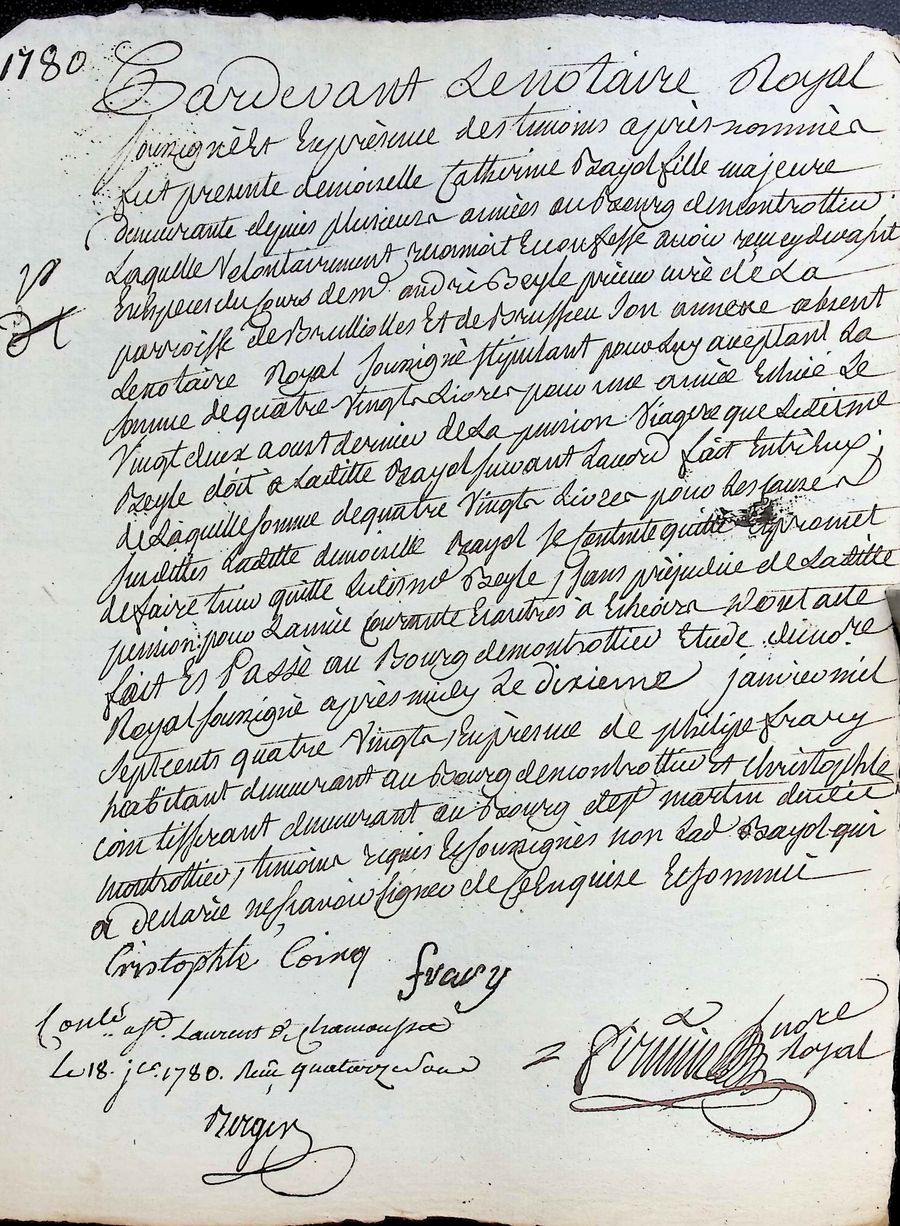 1780
Pardevant Le notaire Royal
soussigné Et En présence des temoins après nommés
fut presente demoiselle Catherine Bayol fille majeure
demeurante depuis plusieurs années au Bourg demontrottier
Laquelle volontairement reconnoit Et confesse avoir reçu cydevant
En Especes du Cours de mre andré Beyle prieur curé de La
parroisse de Brulliolles Et de Brussieu son annexe absent
Le notaire Royal soussigné stipulant pour Luy aceptant La
somme de quatre vingts Livres pour une année Echüe Le
vingt deux aoust dernier de La pension viagere que Ledit sr
Beyle doit a Laditte Bayol suivant Lacord fait Entr'Eux ;
de Laquelle somme de quatre vingts Livres pour Les causes
susdittes Laditte demoiselle Bayol se Contente quitte Et promet
de faire tenir quitte Ledit sr Beyle, sans préjudice de Laditte
pension pour L'année Courante Et autres à Echeoirs Dont acte
fait Et Passé au Bourg demontrottier Etude dunore
Royal soussigné après midy Le dixieme janvier mil
septcents quatre vingts, En présence de philipe frary
habitant demeurant au Bourg demontrottier et christophle
coin tisserant demeurant au Bourg de st martin
montrottier, temoins requis Et soussignés non Lad Bayol qui
a declaré ne sçavoir signer de Ce Enquise Et sommée
Cristophle Coinq frary
Conlé a st Laurent de Chamousset
Le 18. jer. 1780. Reçu quatorze sous
nore
Royal
Berger